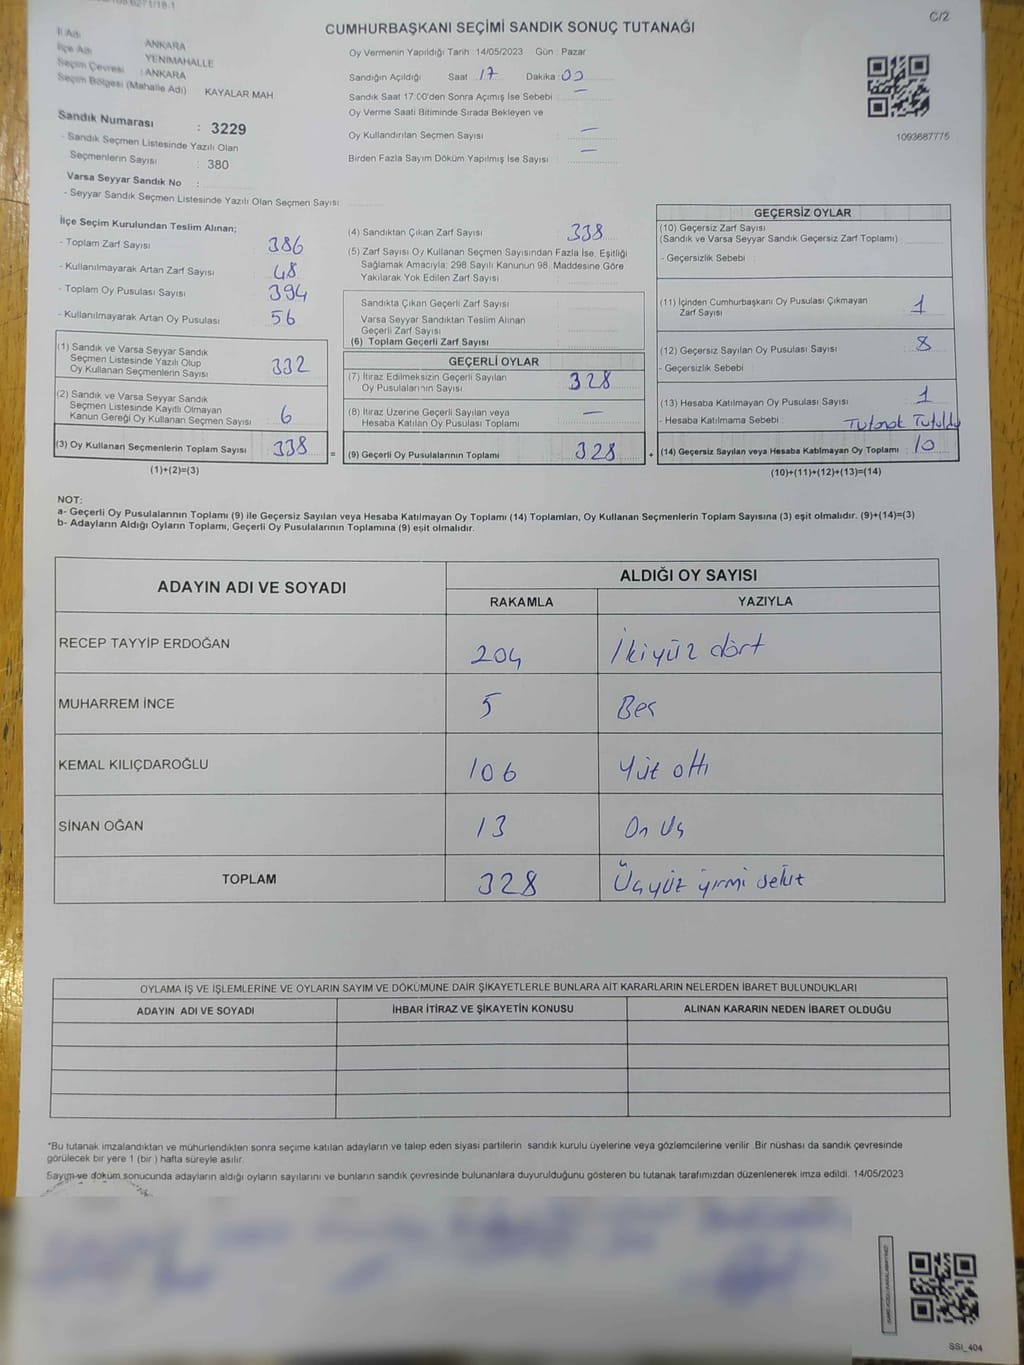 C/2
CUMHURBAŞKANI SEÇİMİ SANDIK SONUÇ TUTANAĞI
İl Adı
ANKARA
İlçe Adı
YENİMAHALLE
Seçim Çevresi : ANKARA
Seçim Bölgesi (Mahalle Adı) KAYALAR MAH.
Sandık Numarası : 3229
- Sandık Seçmen Listesinde Yazılı Olan
Seçmenlerin Sayısı : 380
Varsa Seyyar Sandık No :
- Seyyar Sandık Seçmen Listesinde Yazılı Olan Seçmen Sayısı:
Oy Vermenin Yapıldığı Tarih : 14/05/2023 Gün : Pazar
Sandığın Açıldığı Saat : 17 Dakika : 00
Sandık Saat 17:00'den Sonra Açımış İse Sebebi : —
Oy Verme Saati Bitiminde Sırada Bekleyen ve
Oy Kullandırılan Seçmen Sayısı : —
Birden Fazla Sayım Döküm Yapılmış İse Sayısı : —
1093687775
İlçe Seçim Kurulundan Teslim Alınan;
- Toplam Zarf Sayısı : 386
- Kullanılmayarak Artan Zarf Sayısı : 48
- Toplam Oy Pusulası Sayısı : 394
- Kullanılmayarak Artan Oy Pusulası : 56
(1) Sandık ve Varsa Seyyar Sandık
Seçmen Listesinde Yazılı Olup
Oy Kullanan Seçmenlerin Sayısı : 332
(2) Sandık ve Varsa Seyyar Sandık
Seçmen Listesinde Kayıtlı Olmayan
Kanun Gereği Oy Kullanan Seçmen Sayısı : 6
(3) Oy Kullanan Seçmenlerin Toplam Sayısı : 338
(1)+(2)=(3)
=
(4) Sandıktan Çıkan Zarf Sayısı : 338
(5) Zarf Sayısı Oy Kullanan Seçmen Sayısından Fazla İse, Eşitliği
Sağlamak Amacıyla; 298 Sayılı Kanunun 98. Maddesine Göre
Yakılarak Yok Edilen Zarf Sayısı :
Sandıkta Çıkan Geçerli Zarf Sayısı :
Varsa Seyyar Sandıktan Teslim Alınan
Geçerli Zarf Sayısı :
(6) Toplam Geçerli Zarf Sayısı :
GEÇERLİ OYLAR
(7) İtiraz Edilmeksizin Geçerli Sayılan
Oy Pusulalarının Sayısı : 328
(8) İtiraz Üzerine Geçerli Sayılan veya
Hesaba Katılan Oy Pusulası Toplamı : —
(9) Geçerli Oy Pusulalarının Toplamı : 328
+
GEÇERSİZ OYLAR
(10) Geçersiz Zarf Sayısı
(Sandık ve Varsa Seyyar Sandık Geçersiz Zarf Toplamı) :
- Geçersizlik Sebebi :
(11) İçinden Cumhurbaşkanı Oy Pusulası Çıkmayan
Zarf Sayısı : 1
(12) Geçersiz Sayılan Oy Pusulası Sayısı : 8
- Geçersizlik Sebebi :
(13) Hesaba Katılmayan Oy Pusulası Sayısı : 1
- Hesaba Katılmama Sebebi : Tutanak Tutuldu
(14) Geçersiz Sayılan veya Hesaba Katılmayan Oy Toplamı : 10
(10)+(11)+(12)+(13)=(14)
NOT:
a- Geçerli Oy Pusulalarının Toplamı (9) ile Geçersiz Sayılan veya Hesaba Katılmayan Oy Toplamı (14) Toplamları, Oy Kullanan Seçmenlerin Toplam Sayısına (3) eşit olmalıdır. (9)+(14)=(3)
b- Adayların Aldığı Oyların Toplamı, Geçerli Oy Pusulalarının Toplamına (9) eşit olmalıdır.
ADAYIN ADI VE SOYADI
ALDIĞI OY SAYISI
RAKAMLA YAZIYLA
RECEP TAYYİP ERDOĞAN 204 İkiyüz dört
MUHARREM İNCE 5 Beş
KEMAL KILIÇDAROĞLU 106 Yüz altı
SİNAN OĞAN 13 On Üç
TOPLAM 328 Üçyüz yirmi sekiz
OYLAMA İŞ VE İŞLEMLERİNE VE OYLARIN SAYIM VE DÖKÜMÜNE DAİR ŞİKAYETLERLE BUNLARA AİT KARARLARIN NELERDEN İBARET BULUNDUKLARI
ADAYIN ADI VE SOYADI İHBAR İTİRAZ VE ŞİKAYETİN KONUSU ALINAN KARARIN NEDEN İBARET OLDUĞU
*Bu tutanak imzalandıktan ve mühürlendikten sonra seçime katılan adayların ve talep eden siyasi partilerin sandık kurulu üyelerine veya gözlemcilerine verilir. Bir nüshası da sandık çevresinde
görülecek bir yere 1 (bir ) hafta süreyle asılır.
Sayım ve döküm sonucunda adayların aldığı oyların sayılarını ve bunların sandık çevresinde bulunanlara duyurulduğunu gösteren bu tutanak tarafımızdan düzenlenerek imza edildi. 14/05/2023
SSI_404